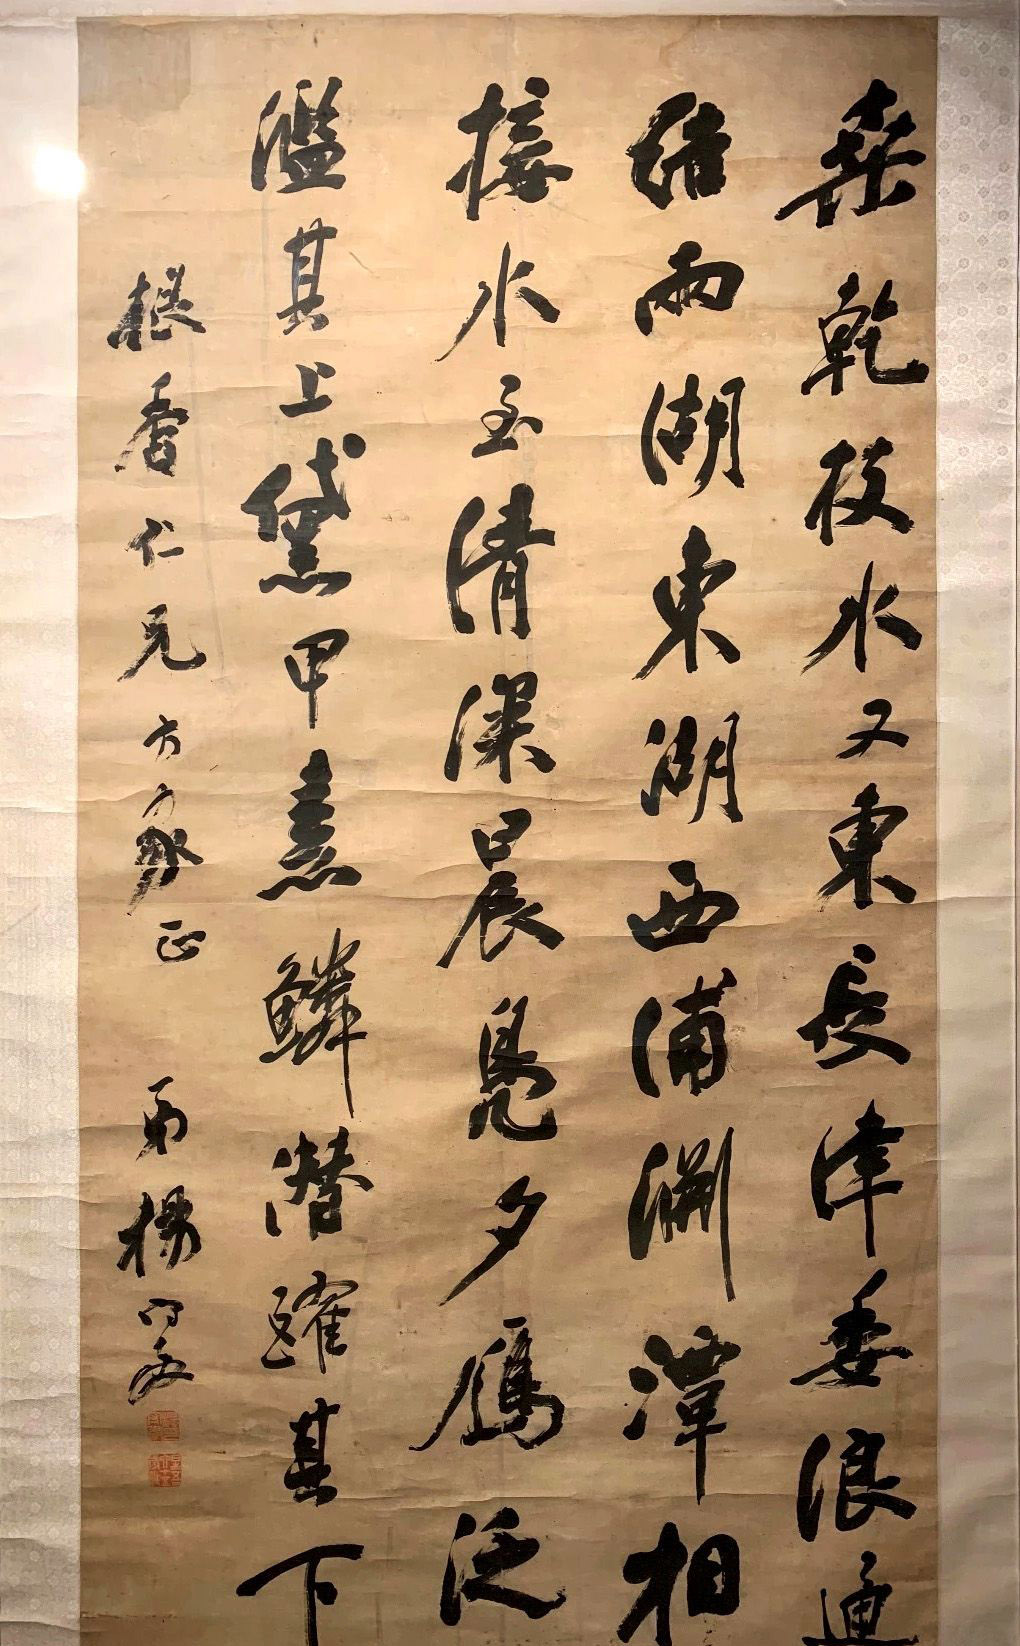 桑乾枝水又東長津委浪通
結兩湖東湖西浦淵潭相
接水至清深晨鳧夕鴈泛
濫其上黛甲素鱗潛躍其下
香仁兄方家正 弟楊守敬